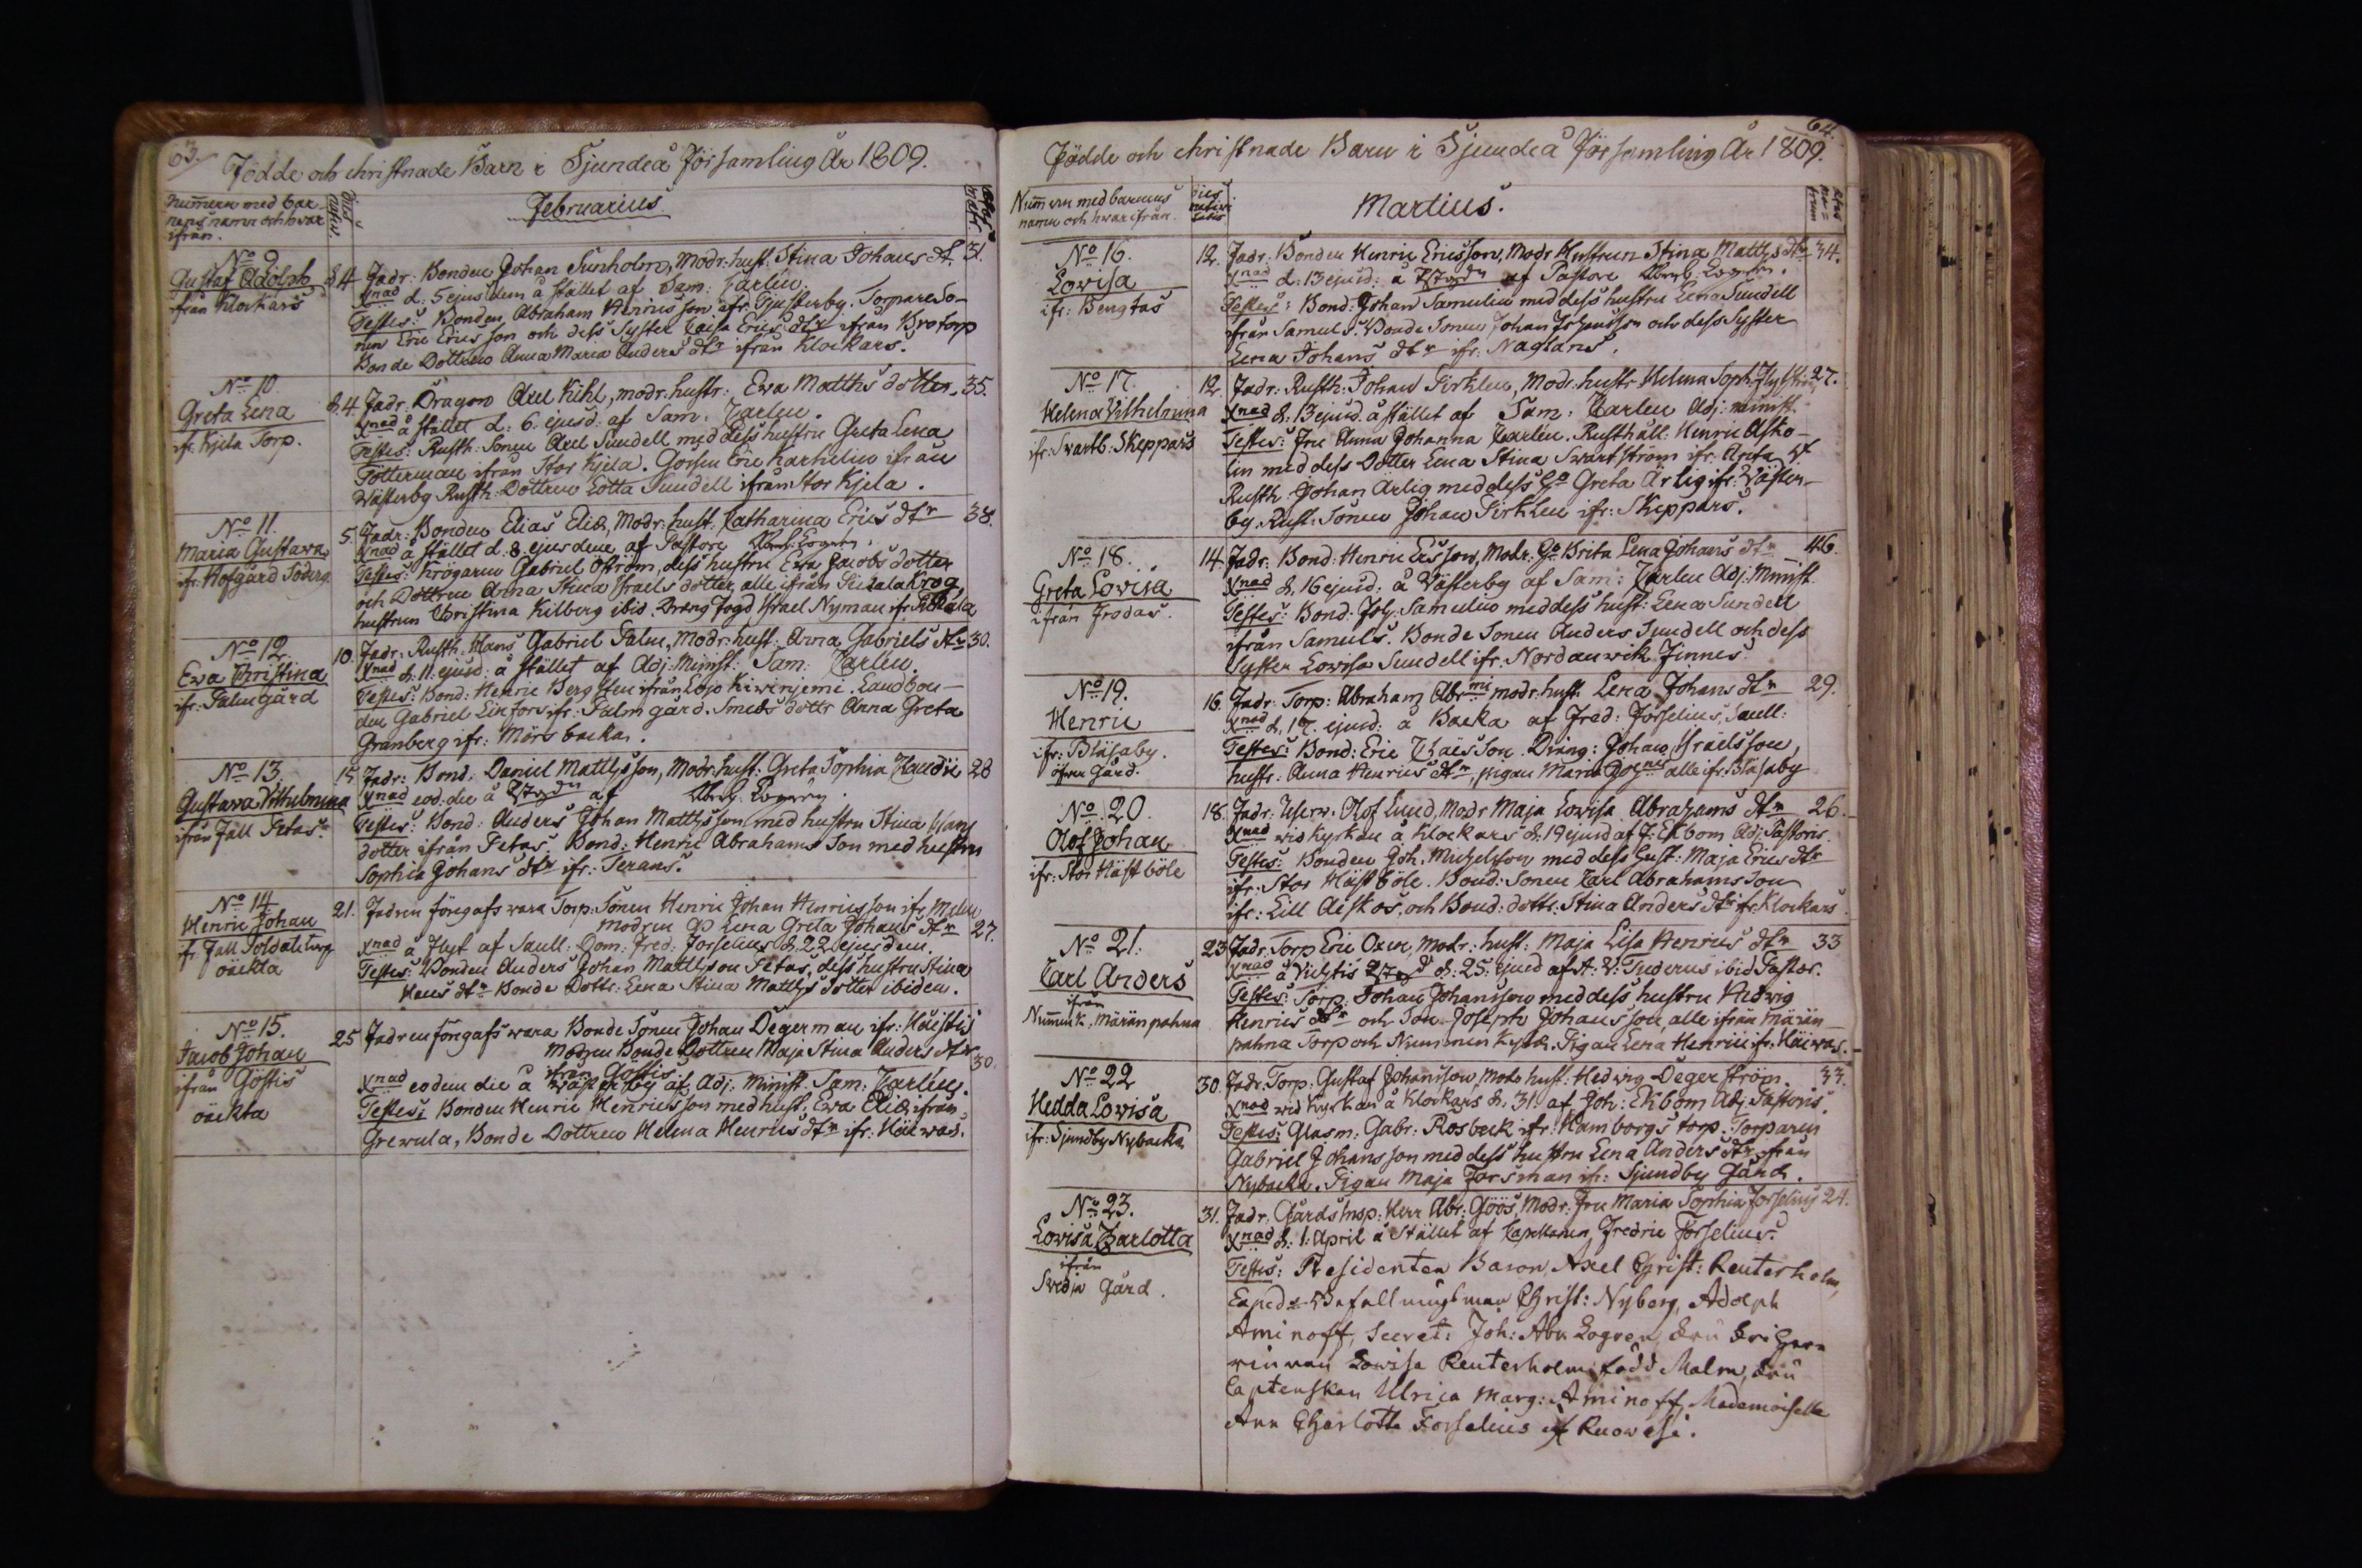 63.
Födde och christnade Barn i Sjundeå Församling År 1809.
Num̄ern med bar-
nens namn och hvar
ifrån.
Februarius
No 9
Gustaf Adolph
ifrån Klockars
d. 4
Fadr: Bonden Johan Sunholm, Modr: hust: Stina Johans dt.
31.
Xnad d: 5 ejusdem å stället af Sam: Carlén.
Testes: Bonden Abraham Henricsson ifr: Gjusterby. Torpare So-
nen Eric Ericsson och dess Syster Caisa Erics dtr ifrån Brotorp
Bonde Dottren Anna Maria Anders dtr ifrån Klockars.
No 10
Greta Lena
ifr. Kjela Torp.
d. 4
Fadr: Dragon Axel Kihl, modr: hustr: Ewa Matths dotter.
35.
Xnad å stället d: 6. ejusd: af Sam: Carlen.
Testes: Rusth: Sonen Axel Sundell med dess hustru Greta Lena
Fotterman ifrån Stor Kjela. Gossen Eric Karhelin ifrån
Wästerby Rusth: Dottren Lotta Sundell ifrån Stor Kjela.
No 11.
Maria Gustava
ifr: Hofgård Söderg.
5.
Fadr: Bonden Elias Eliæ, Modr: hust: Catharina Erics dtr
38.
Xnad å stället d. 8. ejusdem af Pastore
Testes: Krögaren Gabriel Öström, dess hustru Ewa Jacobs dotter
och Dottren Anna Stina Israels dotter, alle ifrån Pickala Krog,
hustrun Christina Kilberg ibid. Dräng Fogd Israel Nyman ifr. Pickala
No 12.
Ewa Christina
ifr: Palmgård
10.
Fadr: Rusth: Hans Gabriel Palm, Modr: hust: Anna Gabriels dtr
30.
Xnad d. 11. ejusd: å stället af Adj: Minist: Sam: Carlén.
Testes: Bond: Henric Bergsten ifrån Lojo Kiwinjemi. Landbon-
den Gabriel Linfors ifr: Palmgård. Smeds dottr Anna Greta
Granberg ifr: Mörsbacka.
No 13.
Gustava Vilhelmina
ifrån Fall Petas.
15
Fadr: Bond: Daniel Matthsson, Modr: hust: Greta Sophia
28
Xnad eod: die å af
Testes: Bond: Anders Johan Matthsson med hustru Stina Hans
dotter ifrån Petas. Bond: Henric Abrahams Son med hustru
Sophia Johans dtr ifr: Terans.
No 14.
Henric Johan
fr. Fall
oäckta
21.
Fadren föregafs vara Torp: Sonen Henric Johan Henricsson ifr:
Modren Lena Greta Johans dtr
27.
Xnad å af Saell: Dom: Fred: Forselius d. 22 ejusdem.
Testes: Bonden Anders Johan Mattsson Petas, dess hustru Stina
Hans dtr Bonde Dottr: Lena Stina Matths dotter ibidem.
No 15.
Jacob Johan
ifrån Göstis
oäckta
25
Fadren föregafs vara Bonde Sonen Johan Degerman ifr:
Modren Bonde Dottren Maja Stina Anders dtr
30.
ifrån Göstis
Xnad eodem die å Wästerby af Adj: Minist: Sam: Carlén.
Testes: Bonden Henric Henricsson med hust: Ewa Eliæ ifrån
Grewula, Bonde Dottren Helena Henrics dtr ifr: Häiwas.
64.
Födde och christnade Barn i Sjundeå Församling År 1809.
Num̄ern med barnens
namn och hwarifrån.
Martius.
No 16.
Lovisa
ifr: Bengtas
12.
Fadr: Bonden Henric Ericsson, Modr Hustrun Stina Matths dtr
34.
Xnad d: 13 ejusd: å af Pastore
Testes: Bond: Johan Samulin med dess hustru Lena Sundell
ifrån Samuls. Bonde Sonen Johan Johansson och dess Syster
Lena Johans dtr ifr: Naglans.
No 17.
Helena Vilhelmina
ifr: Svartb: Skeppars
12.
Fadr: Rusth: Johan Sirhlen, Modr: hustr Helena Soph:
27.
Xnad d. 13 ejusd. å stället af Sam: Carlen Adj: minist.
Testes: Fru Anna Johanna Carlén. Rusthåll: Henric Asko-
lin med dess Dotter Lena Stina Swartström ifr:
Rusth: Johan Ärlig med dess Greta Ärlig ifr: Wäster-
by. Rust: Sonen Johan Sirhlen ifr: Skeppars.
No 18.
Greta Lovisa
ifrån Frodas.
14.
Fadr: Bond: Henric Ersson, Modr: Brita Lena Johans dtr
46.
Xnad d. 16 ejusd: å Västerby af Sam: Carlen Adj: Minist.
Testes: Bond: Joh: Samulin med dess hust: Lena Sundell
ifrån Samuels. Bonde Sonen Anders Sundell och dess
Syster Lovisa Sundell ifr: Nordanwik Finnes.
No 19.
Henric
ifr: Blåsaby
öfra Gård.
16.
Fadr: Torp: Abraham Abrmi modr: hust: Lena Johans dtr
29.
Xnad d. 17. ejusd: å Backa af Fred: Forselius, Saell:
Testes: Bond: Eric Claësson. Dräng: Johan Israelsson,
hustr: Anna Henrics dtr, pigan Maria alle ifr: Blåsaby
No 20.
Olof Johan
ifr: Stor Häst böle
18.
Fadr: Olof Lund, Modr Maja Lovisa Abrahams dtr
26.
Xnad wid Kyrkan å Klockars d. 19 ejusd af J: Ekbom Adj: Pastoris.
Testes: Bonden Joh: Michelsson med dess hust: Maja Erics dtr
ifr: Stor Häst böle. Bond: Sonen Carl Abrahams Son
ifr: Lill Aiskos, och Bond: dottr: Stina Anders dtr ifr. Klockars
No 21.
Carl Anders
ifrån
Nummik, Märänpahna
23
Fadr: Torp Eric Oxen, Modr: hust: Maja Lisa Henrics dtr
33
Xnad å Vichtis d: 25: ejusd af A: V: Tuderus ibid Pastor.
Testes: Torp: Johan Johansson med dess hustru Hedwig
Henrics dtr och Son Joseph Johansson, alle ifrån Märän-
pahna Torp och Nummenkylä. Pigan Lena Henrici ifr. Häiwas.
No 22
Hedda Lovisa
ifr: Sjundby Nybacka
30.
Fadr: Torp: Gustaf Johansson, Modr hust: Hedwig Degerström.
33.
Xnad wid Kyrkan å Klockars d. 31. af Joh: Ekbom Adj: Pastoris.
Testes: Glasm: Gabr: Rosbeck ifr: Hamborgs torp. Torparen
Gabriel Johansson med dess hustru Lena Anders dtr ifrån
Nybacka. Pigan Maja Forsman ifr: Sjundby Gård.
No 23.
Lovisa Charlotta
ifrån
Svedja Gård.
31.
Fadr: Gårds Insp: Herr Abr: Göös, Modr: Fru Maria Sophia Forselius
24.
Xnad d: 1. April å Stället af Capellanen Fredric Forselius.
Testes: Presidenten Baron Axel Christ: Reuterholm,
Befallningsman Christ: Nyberg, Adolph
Aminoff, Secret: Joh: Abr Logren, Fru Friherr
rinnan Lovisa Reuterholm född Malm, Fru
Captenskan Ulrica Marg: Aminoff, Mademoiselle
Ann Charlotta Forselius af Ruowesi.